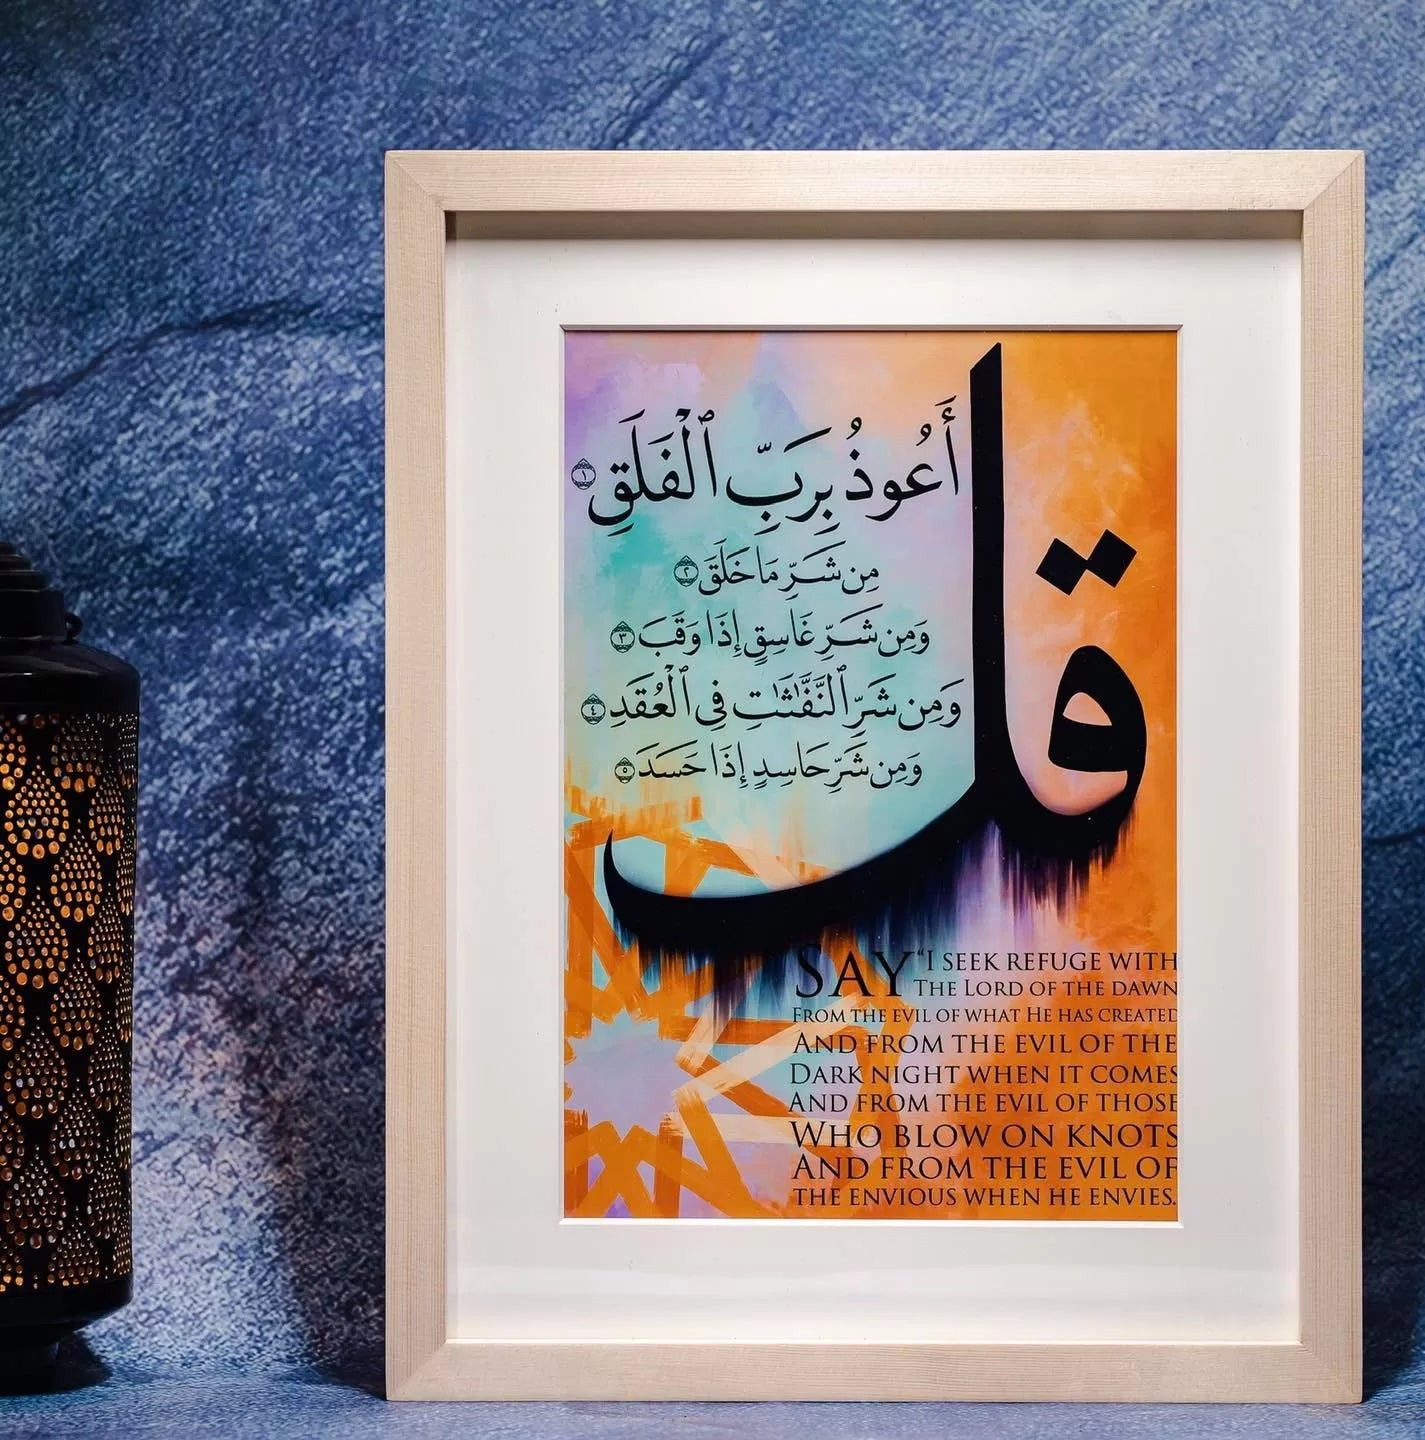 قل
أَعُوذُ بِرَبِّ ٱلْفَلَقِ ١
مِن شَرِّ مَا خَلَقَ ٢
وَمِن شَرِّ غَاسِقٍ إِذَا وَقَبَ ٣
وَمِن شَرِّ ٱلنَّفَّٰثَٰتِ فِى ٱلْعُقَدِ ٤
وَمِن شَرِّ حَاسِدٍ إِذَا حَسَدَ ٥
SAY “I SEEK REFUGE WITH
THE LORD OF THE DAWN
FROM THE EVIL OF WHAT HE HAS CREATED
AND FROM THE EVIL OF THE
DARK NIGHT WHEN IT COMES
AND FROM THE EVIL OF THOSE
WHO BLOW ON KNOTS
AND FROM THE EVIL OF
THE ENVIOUS WHEN HE ENVIES.